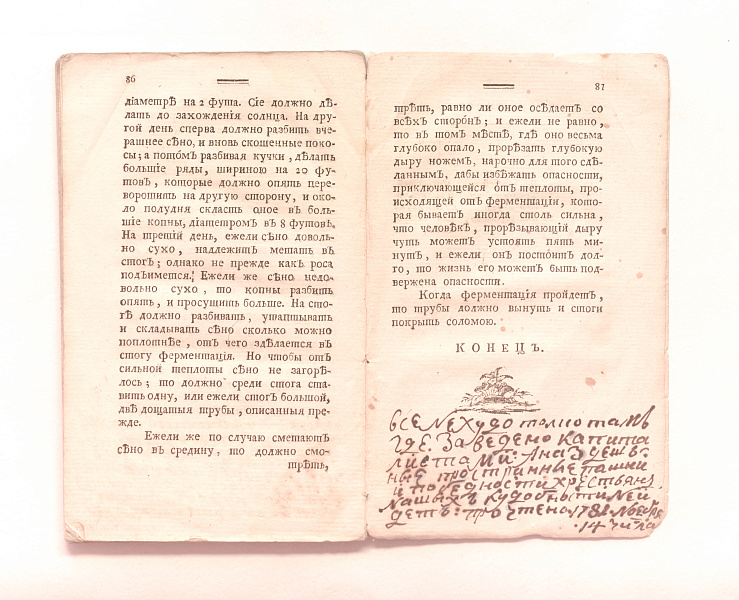 86
діаметрѣ на 2 фута. Сіе должно дѣ-
лать до захожденія солнца. На дру-
гой день сперва должно разбить вче-
рашнее сѣно, и вновь скошенные поко-
сы; а пото́мъ разбивая кучки, дѣлать
большіе ряды, шириною на 20 фу-
товъ, которые должно опять пере-
воротить на другую сторону, и око-
ло полудня скласть оное въ боль-
шіе копны, діаметромъ въ 8 футовъ.
На третій день, ежели сѣно доволь-
но сухо, надлежитъ метать въ
стогъ; однако не прежде какъ роса
подъимется. Ежели же сѣно недо-
вольно сухо, то копны разбить
опять, и просушить больше. На сто-
гѣ должно разбивать, утаптывать
и складывать сѣно сколько можно
поплотнѣе, отъ чего здѣлается въ
стогу ферментація. Но чтобы отъ
сильной теплоты сѣно не загорѣ-
лось; то должно среди стога ста-
вить одну, или ежели стогъ большой,
двѣ дощатыя трубы, описанныя пре-
жде.
Ежели же по случаю сметаютъ
сѣно въ средину, то должно смо-
трѣть,
87
трѣть, равно ли оное осѣдаетъ со
всѣхъ сторо́нъ; и ежели не равно,
то въ томъ мѣстѣ, гдѣ оно весьма
глубоко опало, прорѣзать глубокую
дыру ножемъ, нарочно для того сдѣ-
ланнымъ, дабы избѣжать опасности,
приключающейся о́тъ теплоты, про-
исходящей отъ ферментаціи, кото-
рая бываетъ иногда столь сильна,
что человѣкъ, прорѣзывающій дыру
чуть можетъ устоять пять ми-
нутъ, и ежели онъ посто́итъ дол-
го, то жизнь его можетъ быть под-
вержена опасности.
Когда ферментація пройдетъ,
то трубы должно вынуть и стоги
покрыть соломою.
КОНЕЦЪ.
все нехудо толко тамъ
где. заведено капита
листами: Аназдешъ:
ные пространные пашни
и победности хрестьянъ
нашыхъ кудобности ней
детъ: прочтено 178 Ноебря
14 числа